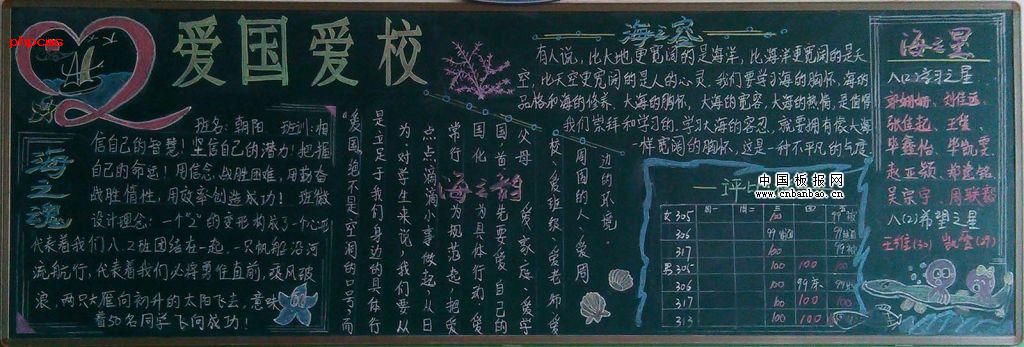 phpcms
爱国爱校
班名:朝阳 班训:相
信自己的智慧!坚信自己的潜力!把握
自己的命运!用信念,战胜困难,用勤奋
战胜惰性,用效率创造成功! 班徽
设计理念:一个"2"的变形构成了一个心形
代表着我们八.2班团结在一起,一只帆船沿河
流航行,代表着我们必将勇往直前,乘风破
浪,两只大雁向初升的太阳飞去,意味
着50名同学飞向成功!
海之魂
海之韵
边的环境。
周围的人、爱周
校、爱班级、爱老师、爱
父母、爱家庭、爱学
国,首先要爱自己的
国化为具体行动,爱
常行为规范起,把爱
点点滴滴小事做起,从日
为,对学生来说,我们要从
是立足于我们身边的具体行
"爱国"绝不是空洞的口号,而
海之容
有人说,比大地更宽阔的是海洋,比海洋更宽阔的是天
空,比天空更宽阔的是人的心灵。我们要学习海的胸怀,海的
品格和海的修养。大海的胸怀,大海的宽容,大海的热情,是值得
我们崇拜和学习的。学习大海的容忍,就要拥有像大海
一样宽阔的胸怀,这是一种不平凡的气度
一评比
中国板报网
www.cnbanbao.cn
女305 100
306
317 100
男305 100 100 100
306 100
317 100 100 100
313 100 100
海之星
八(2)学习之星
张佳起
赵亚颖
吴宗宇
八(2)希望之星